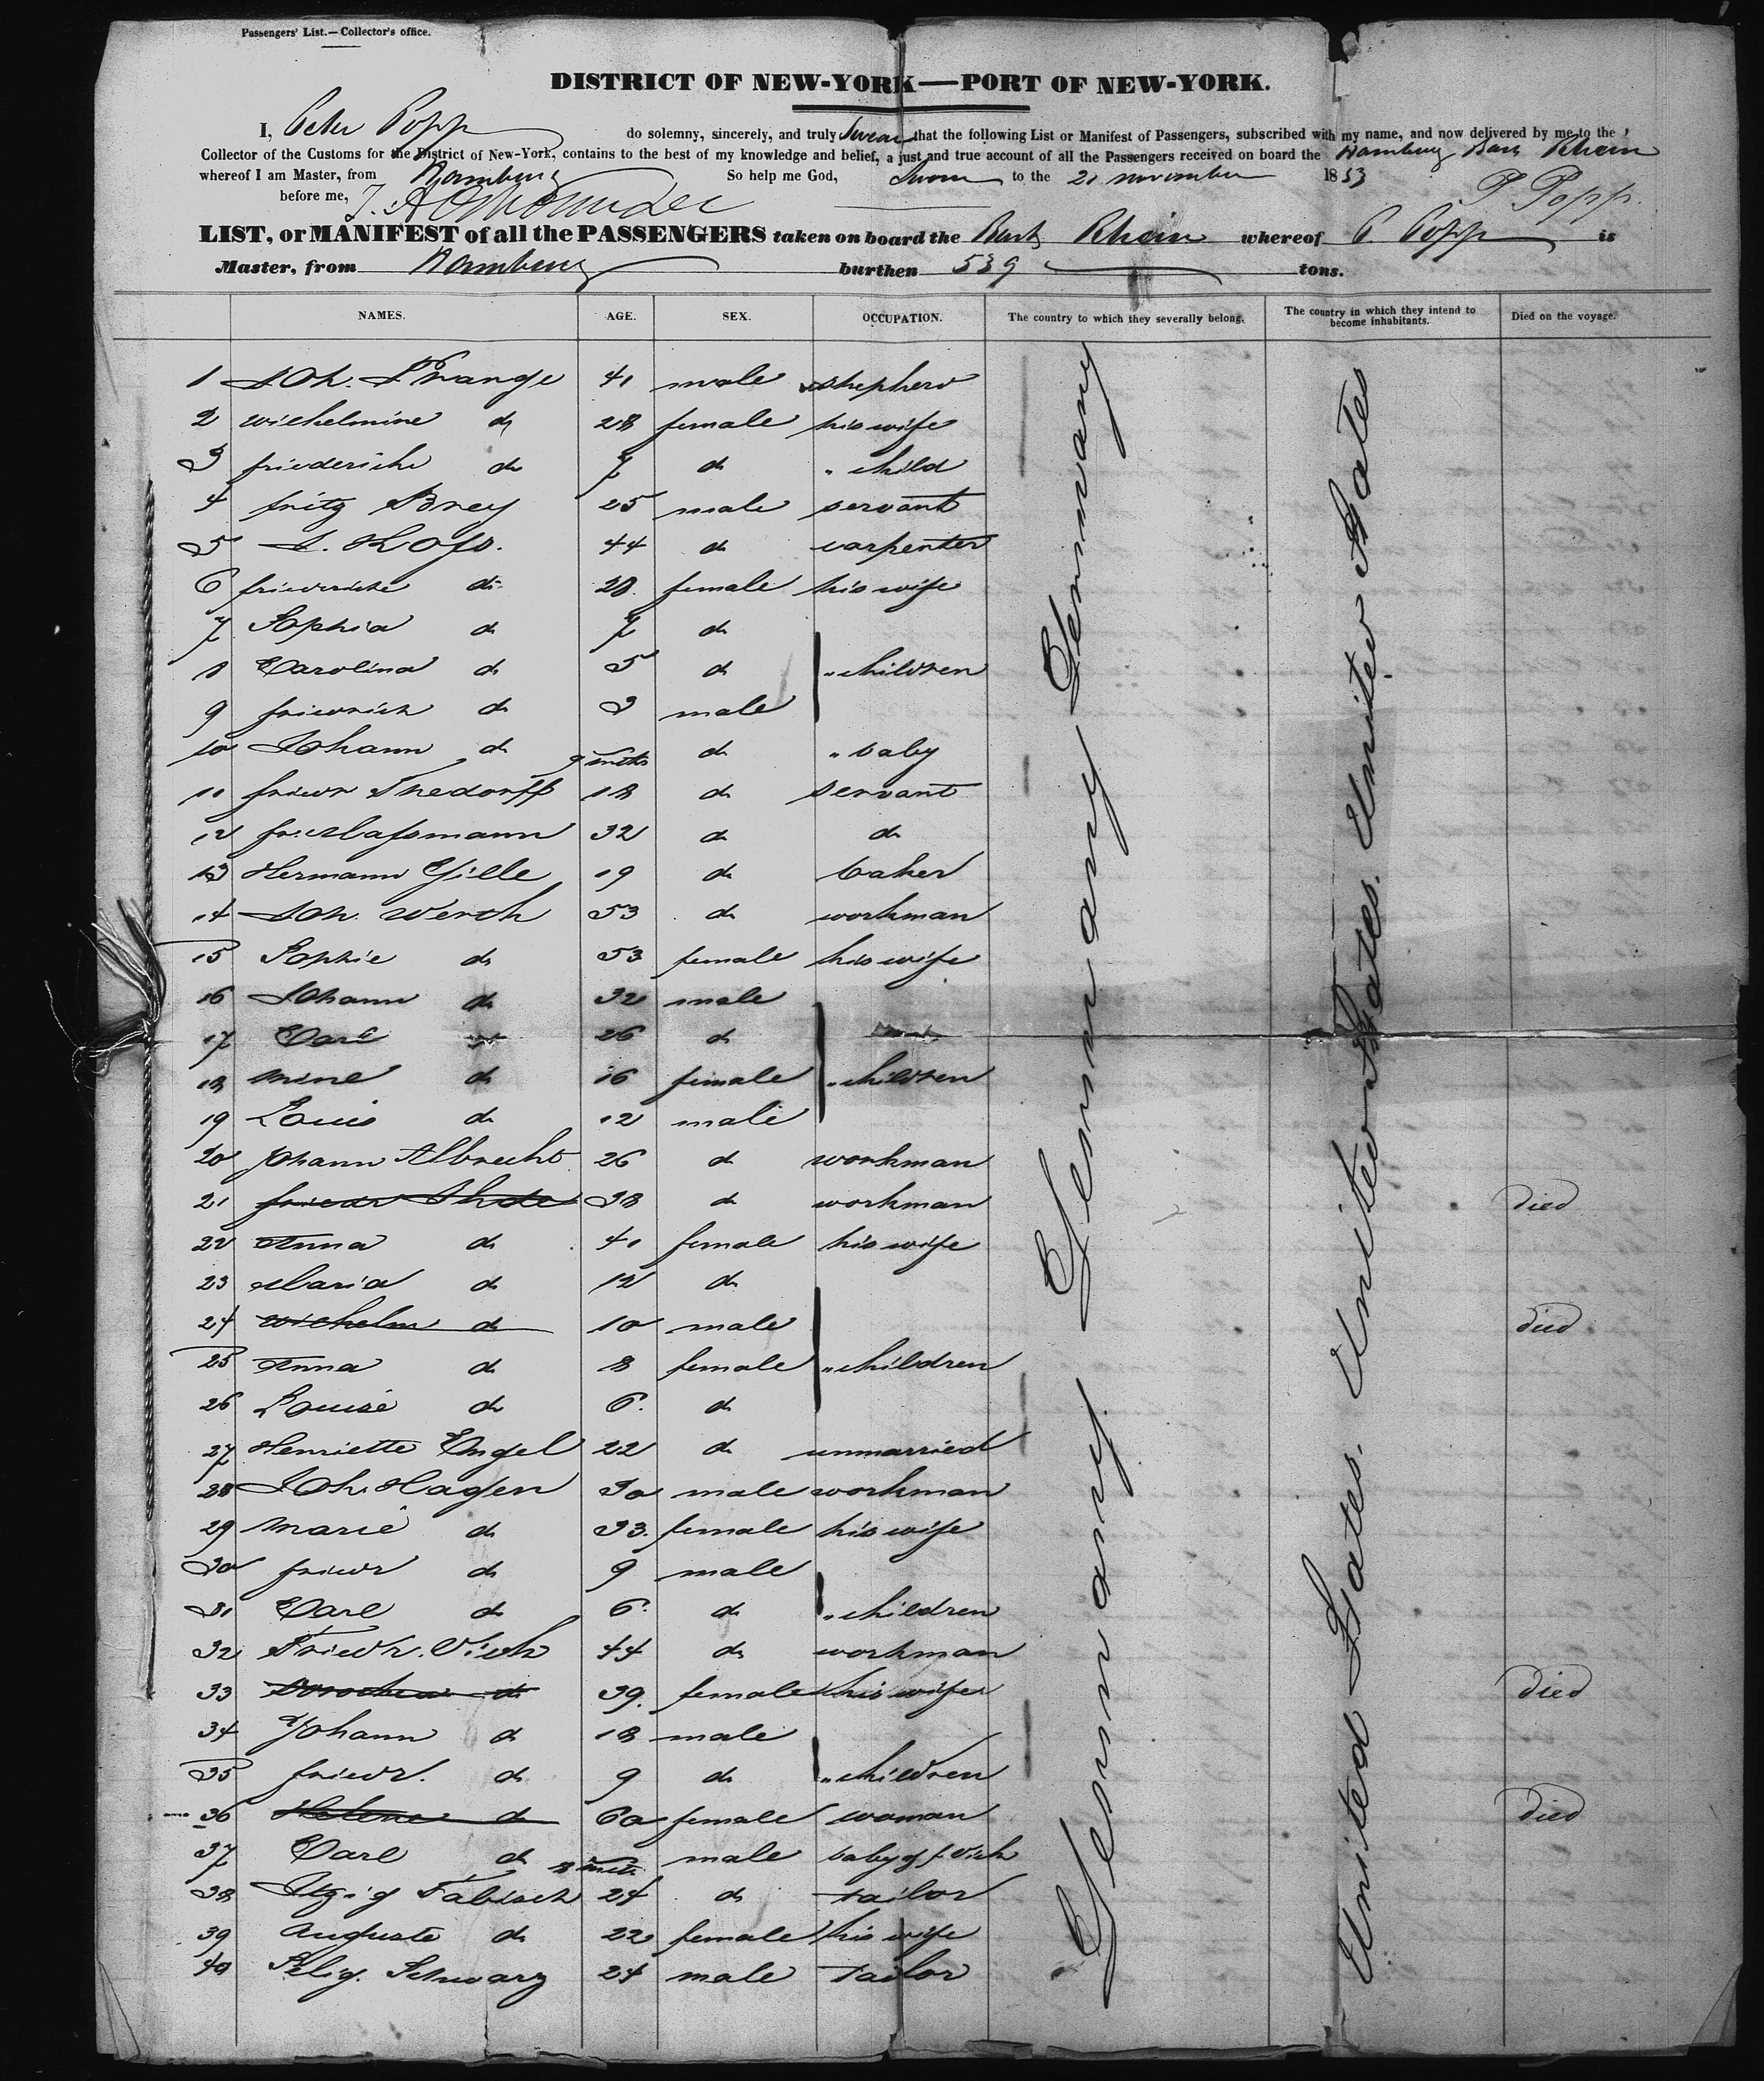 Passengers' List.—Collector's office.
DISTRICT OF NEW-YORK—PORT OF NEW-YORK.
I, Peter Popp do solemny, sincerely, and truly Swear that the following List or Manifest of Passengers, subscribed with my name, and now delivered by me to the
Collector of the Customs for the District of New-York, contains to the best of my knowledge and belief, a just and true account of all the Passengers received on board the Hamburg Bark Rhein
whereof I am Master, from Hamburg So help me God, Sworn to the 21 november 1853
before me, P Popp.
LIST, or MANIFEST of all the PASSENGERS taken on board the Bark Rhein whereof P. Popp is
Master, from Hamburg burthen 539 tons.
NAMES. AGE. SEX. OCCUPATION. The country to which they severally belong. The country in which they intend to become inhabitants. Died on the voyage.
1 Joh. Prange 41 male shepherd
2 wilhelmine do 28 female his wife
3 friederike do 7 do " child
4 fritz Brey 25 male servant
5 J. Kofs. 44 do carpenter
6 friederike do 28. female his wife
7 Sophia do 7 do
8 Carolina do 5 do " children
9 friedrich do 3 male
10 Johann do 9 mths do " baby
11 friedr Thedorff 18 do servant
12 fr. Mafsmann 32 do do
13 Hermann Gille 19 do baker
14 Joh. Werth 53 do workman
15 Sophie do 53 female his wife
16 Johann do 32 male
17 Carl do 26 do
18 mine do 16 female " children
19 Louis do 12 male
20 Johann Albrecht 26 do workman
21 friedr Thde 38 do workman died
22 Anna do 41 female his wife
23 Maria do 12 do
24 wilhelm do 10 male died
25 Anna do 8 female " children
26 Louise do 6. do
27 Henriette Engel 22 do unmarried
28 Joh. Hagen 30 male workman
29 marie do 33. female his wife
30 friedr do 9 male
31 Carl do 6. do " children
32 Friedr. Vick 44 do workman
33 Dorothea do 39. female his wife died
34 Johann do 18 male
35 friedr. do 9 do " children
36 Helene do 60 female woman died
37 Carl do 8 mts male baby of f. Vick
38 Itzig Fabisch 24 do tailor
39 Auguste do 22 female his wife
40 Selig. Schwarz 24 male tailor
Germany Germany Germany Germany
United States. United States. United States